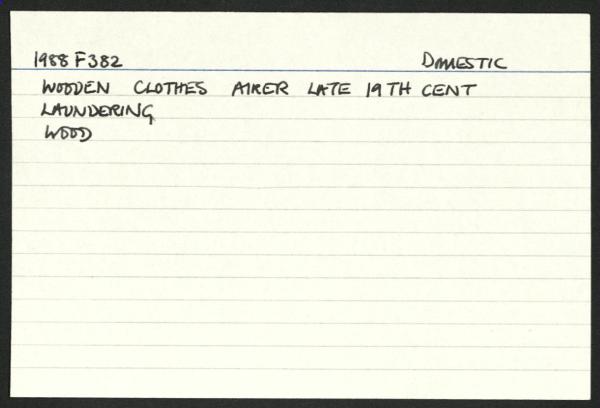 1988 F382 DOMESTIC
WOODEN CLOTHES AIRER LATE 19TH CENT
LAUNDERING
WOOD